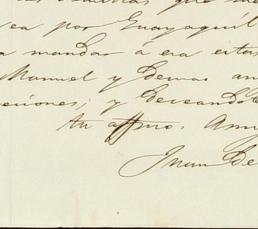 que
sea por Guayaquil
a mandar á era estas
Manuel y demas am
ciones; y deseando
tu affmo. Amig
Juan De